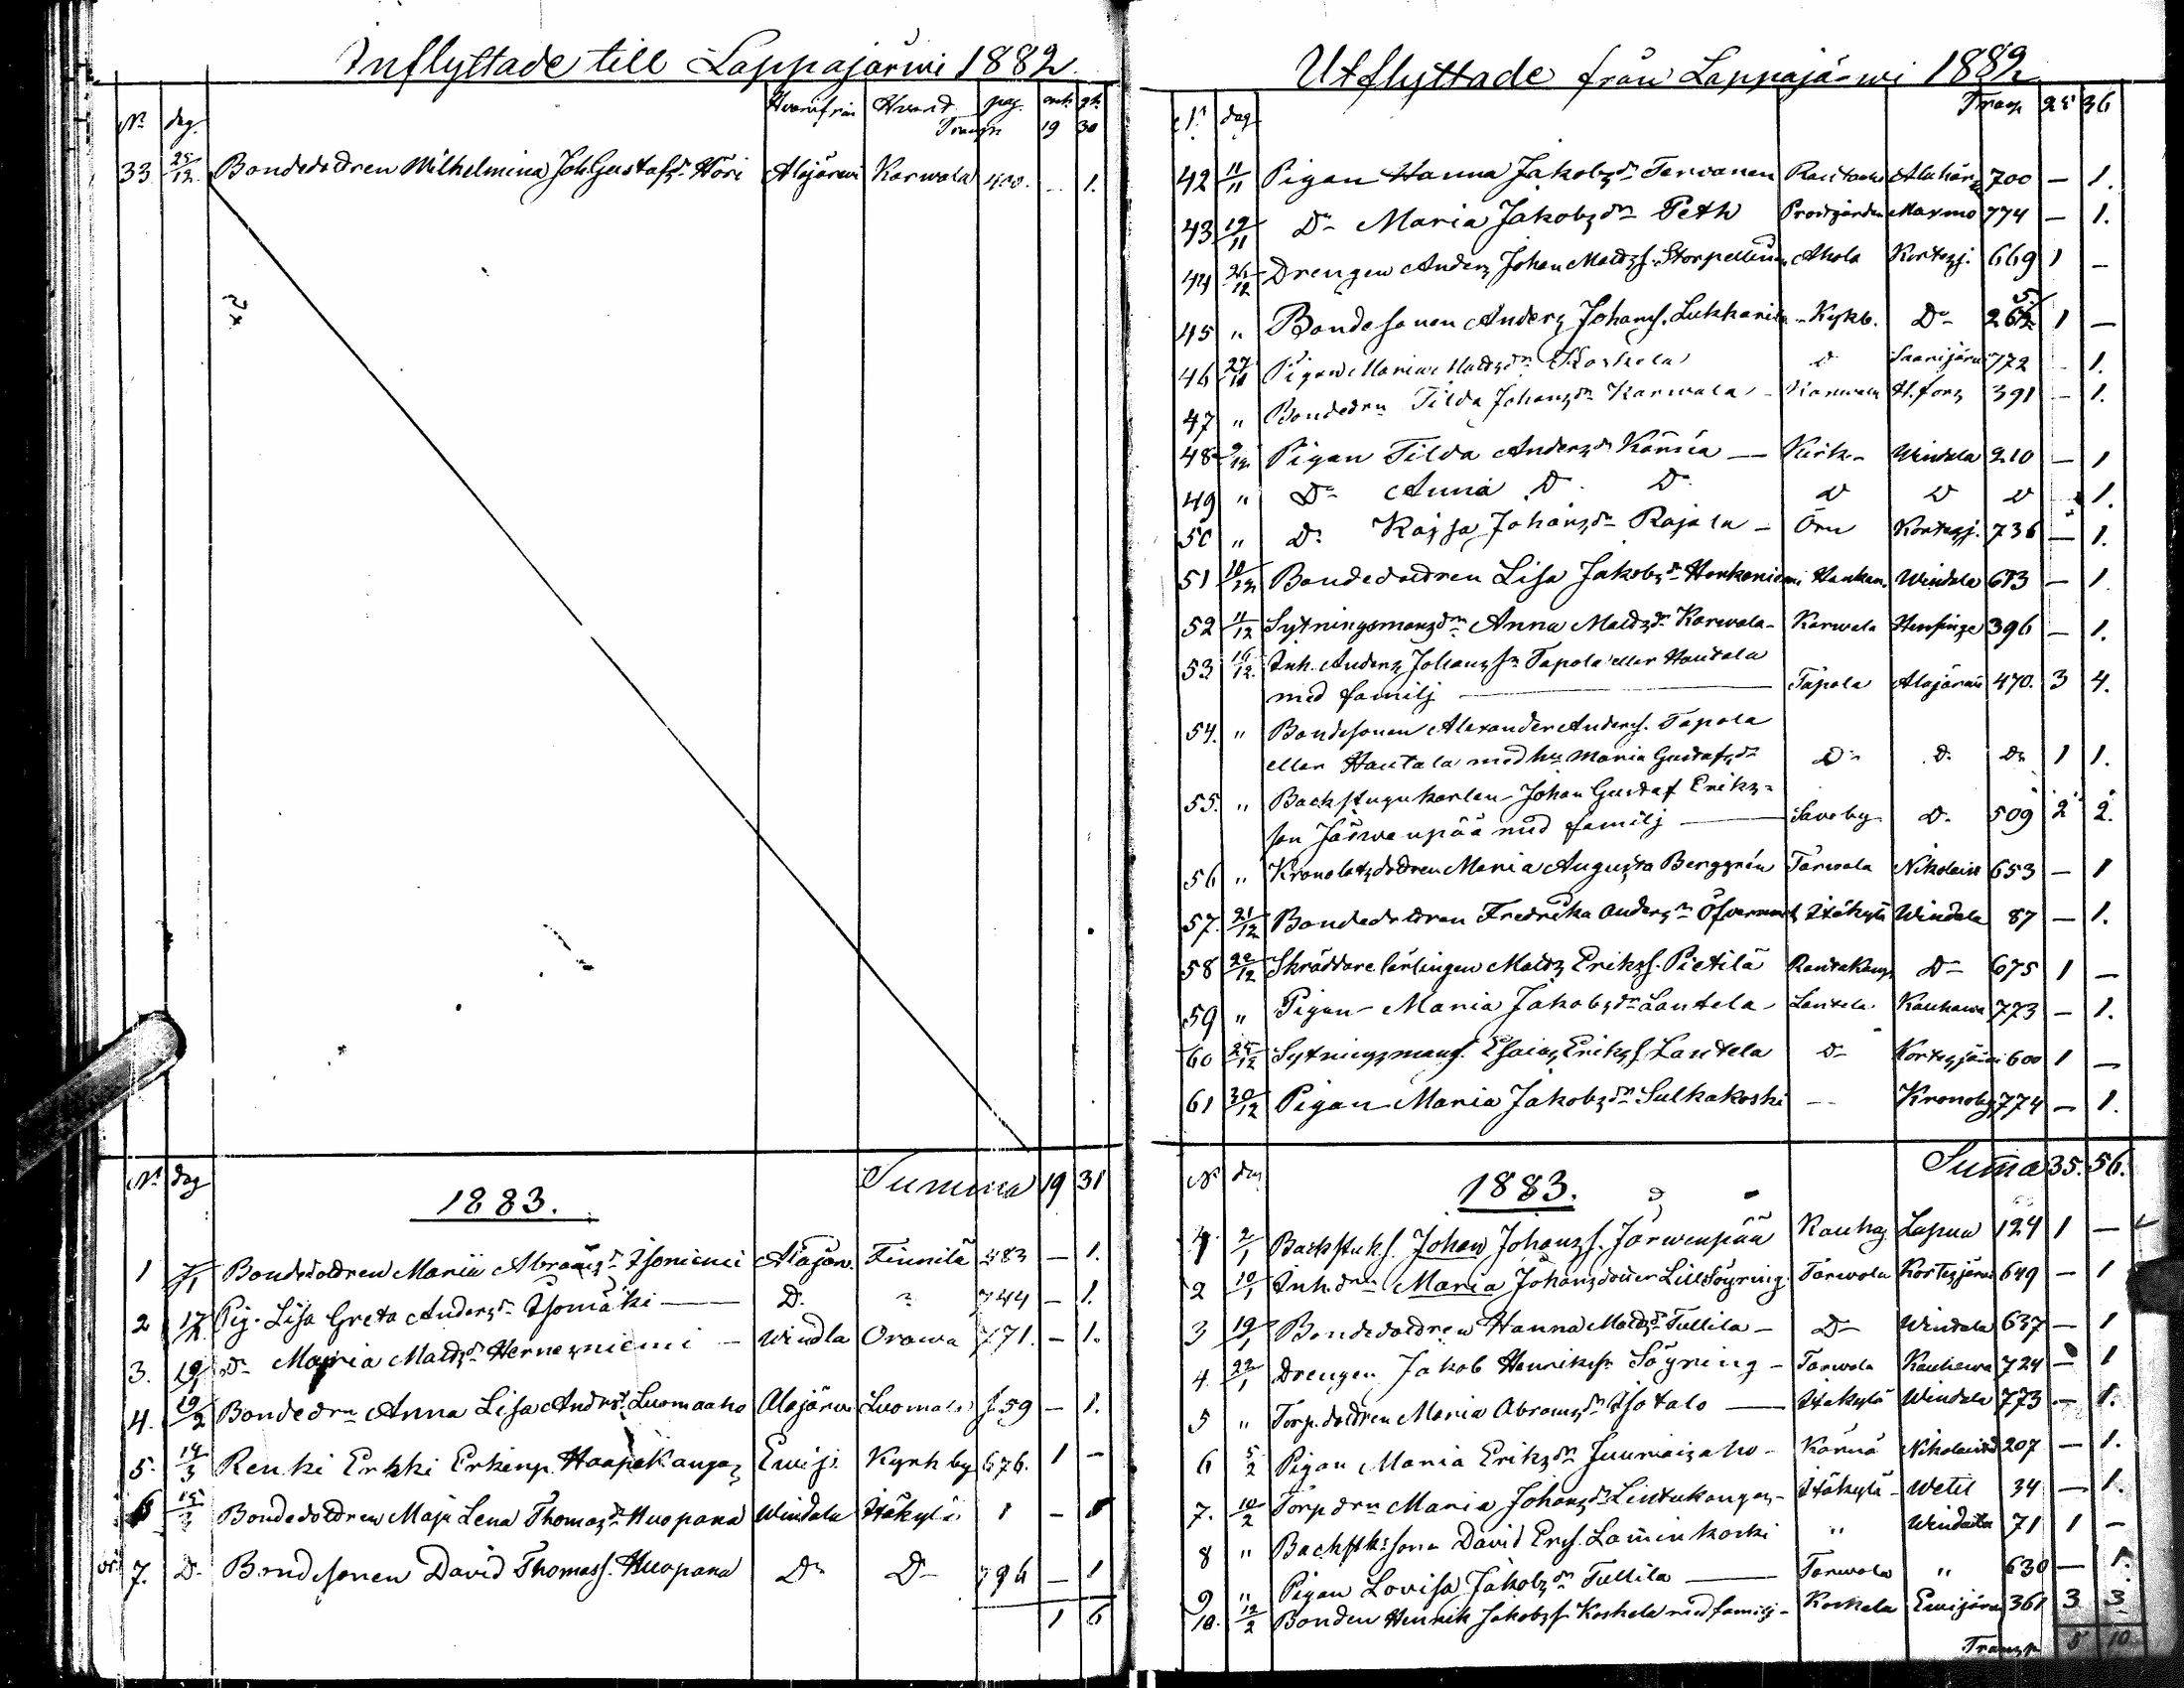 Inflyttade till Lappajärwi 1882.
No dag. Hvarifrån Hvart pag. mk qk.
Transp 19 30
33 25/12 Bondedottren Wilhelmina Joh. Gustafsdr Höri Alajärwi Karwala 400. - 1.
Summa 19 31
No dag
1883.
1 7/1 Bondedottren Maria Abramsdr Isoniemi Alajärw. Finnilä 483 - 1.
2 17/1 Pig. Lisa Greta Andersdr Isomäki D. 744 - 1.
3. 19/1 Do Maria Mattsdr Hernesniemi Windla Orawa 771. - 1.
4. 19/2 Bondedrn Anna Lisa Andersdr Luomaaho Alajärwi Luomala 59 - 1.
5. 14/3 Renki Erkki Erkinp. Haapakangas Ewijr. Kyrkby 676. 1 -
6 15/3 Bondedottren Maja Lena Thomasdr Huopana Windala Itäkylä 1 -
7. D. Bondesonen David Thomass. Huopana Do Do 796 - 1
1 6
Utflyttade från Lappajärwi 1882
No dag Transp 25 36
42 11/11 Pigan Hanna Jakobsdr Terwanen Alahärmä 700 - 1.
43 19/11 Do Maria Jakobsdr Peth Prestgården Maxmo 774 - 1.
44 26/12 Drengen Anders Johan Mattss. Storpellinen Ahola Kortesj. 669 1 -
45 " Bondesonen Anders Johans. Lukkarila Kykb. Do 262 1 -
46 Pigan Maria Mattsdr Koskela D Saarijärwi 772 - 1.
47 " Bondedrn Tilda Johansdr Karwala Karwala H.fors 391 - 1.
48 9/12 Pigan Tilda Andersdr Kärnä Kirk- Windala 210 - 1
49 " Do Anna D. D. D D D - 1.
50 " Do Kajsa Johansdr Rajala Öru Kortesj. 736 - 1.
51 10/12 Bondedottren Lisa Jakobsdr Honkoniemi Honkon. Windala 673 - 1.
52 11/12 Sytningsmansdrn Anna Mattsdr Karwala Karwala Helsinge 396 - 1.
53 16/12. Inh. Anders Johanssn Tapola eller Hautala
med familj Tapola Alajärwi 470. 3 4.
54. " Bondesonen Alexander Anders. Tapola
eller Hautala med hu Maria Gustafsdr Do D. Do 1 1.
55. " Backstugukarlen Johan Gustaf Eriks-
son Järwenpää med familj Saveby D. 509 2 2.
56 " Kronolotsdottren Maria Augusta Berggrén Tarwola Nikolaist 653 - 1
57. 21/12 Bondedottren Fredrika Andersdr Öfvermark Itäkylä Windala 87 - 1.
58 22/12 Skräddarelärlingen Matts Erikss. Pietilä Rantakang. Do 675 1 -
59 " Pigan Maria Jakobsdr Lantela Lantela Kauhawa 773 - 1.
60 25/12 Sytningsmans. Esaias Erikss. Lantela Do Kortesjärwi 600 1 -
61 30/12 Pigan Maria Jakobsdr Sulkakoski - Kronoby 774 - 1.
Summa 35. 56.
No dag
1883.
1 2/1 Backstuks. Johan Johanss. Järwenpää Kauhaj. Lapua 124 1 -
2 10/1 Inh.drn Maria Johansdotter Lillsöyring Tarwola Kortesjärwi 649 - 1
3 19/1 Bondedottren Hanna Mattsdr Tullila Do Windala 637 - 1
4. 22/1 Drengen Jakob Henrikssn Söyring Tarwola Kauhawa 724 - 1
5 " Torp.dottren Maria Abramsdr Isotalo Itäkylä Windala 773 - 1.
6 5/2 Pigan Maria Eriksdr Juurmaisaho Kärnä Nikolaist 207 - 1.
7. 10/2 Torp drn Maria Johansdr Lintukangas Itäkylä Wetil 34 - 1.
8 " Backstk:sonen David Ers. Laminkoski " Windala 71 1 -
9 " Pigan Lovisa Jakobsdr Tullila Tarwola " 630 - 1.
10. 12/2 Bonden Henrik Jakobss. Koskela med familj Koskela Ewijärwi 361 3 3
Transp 5 10